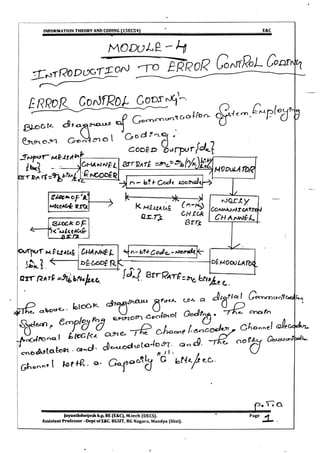 INFORMATION THEORY AND CODING (15EC54) E&C
MODULE-4
INTRODUCTION TO ERROR CONTROL CODING
ERROR CONTROL CODING:-
Block diagram of Communication System Employing
error Control Coding:
INPUT MESSAGE
CODED OUTPUT {dk}
CHANNEL ENCODER
BIT RATE
MODULATOR
n-bit Code words
BLOCK OF 'K' MESSAGE BITS
K MESSAGE BITS
(n-k) CHECK BITS
NOISY COMMUNICATION CHANNEL
BLOCK OF 'K' MESSAGE BITS
OUTPUT MESSAGE
CHANNEL DECODER
n-bit Code-words
DEMODULATOR
BIT RATE= bits/sec.
BIT RATE= bits/sec.
The above block diagram gives us a digital Communication
System, employing error control Coding. The main
functional blocks are The Channel encoder, Channel decoder
modulator and demodulator and The noisy Communication
Channel with a Capacity 'C' bits/sec.
P.T.O
Jayanthdwijesh h.p, BE (E&C), M.tech (DECS).
Assistant Professor –Dept of E&C, BGSIT, BG Nagara, Mandya (Dist).
Page 1